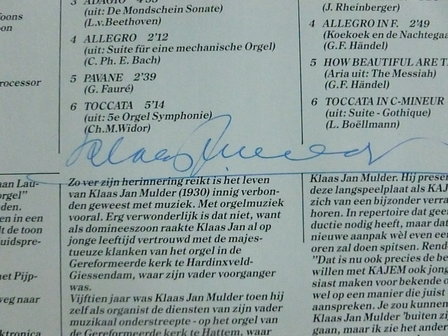 3 ADAGIO
(uit: De Mondschein Sonate)
(L.v.Beethoven)
4 ALLEGRO 2'12
(uit: Suite für eine mechanische Orgel)
(C. Ph. E. Bach)
5 PAVANE 2'39
(G. Fauré)
6 TOCCATA 5'14
(uit: 5e Orgel Symphonie)
(Ch.M.Widor)
(J. Rheinberger)
4 ALLEGRO IN F. 2'49
(Koekoek en de Nachtegaa
(G.F. Händel)
5 HOW BEAUTIFUL ARE T
(Aria uit: The Messiah)
(G.F. Händel)
6 TOCCATA IN C-MINEUR
(uit: Suite - Gothique)
(L. Boëllmann)
foons
ocessor
Klaas
aan Lau-
orgel"
den in een
dt de toon
uidspre-
et Pijp-
weg naar
Zo ver zijn herinnering reikt is het leven
van Klaas Jan Mulder (1930) innig verbon-
den geweest met muziek. Met orgelmuziek
vooral. Erg verwonderlijk is dat niet, want
als domineeszoon raakte Klaas Jan al op
jonge leeftijd vertrouwd met de majes-
tueuze klanken van het orgel in de
Gereformeerde kerk te Hardinxveld-
Giessendam, waar zijn vader voorganger
was.
Vijftien jaar was Klaas Jan Mulder toen hij
zelf als organist de diensten van zijn vader
muzikaal onderstreepte - op het orgel van
de Gereformeerde kerk te Hattem, waar
Klaas Jan Mulder. Hij presen
deze langspeelplaat als KAJ
zich van een bijzonder verra
horen. In repertoire dat geen
ductie nodig heeft, maar dat
nieuwe aanpak wèl even een
oren zal doen spitsen. Rend
"Dat is nu ook precies de be
willen met KAJEM ook jong
siast maken voor bekende o
wel op een manier die juist
aanspreken. Je zou kunnen
gaan, maar ik zie het